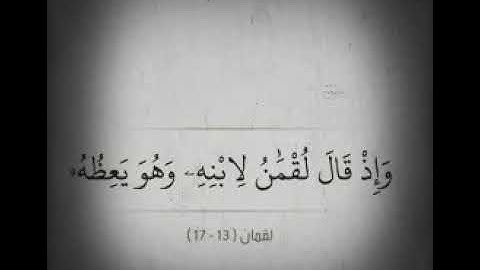 وَإِذْ قَالَ لُقْمَٰنُ لِٱبْنِهِۦ وَهُوَ يَعِظُهُۥ
لقمان ( 13 - 17 )